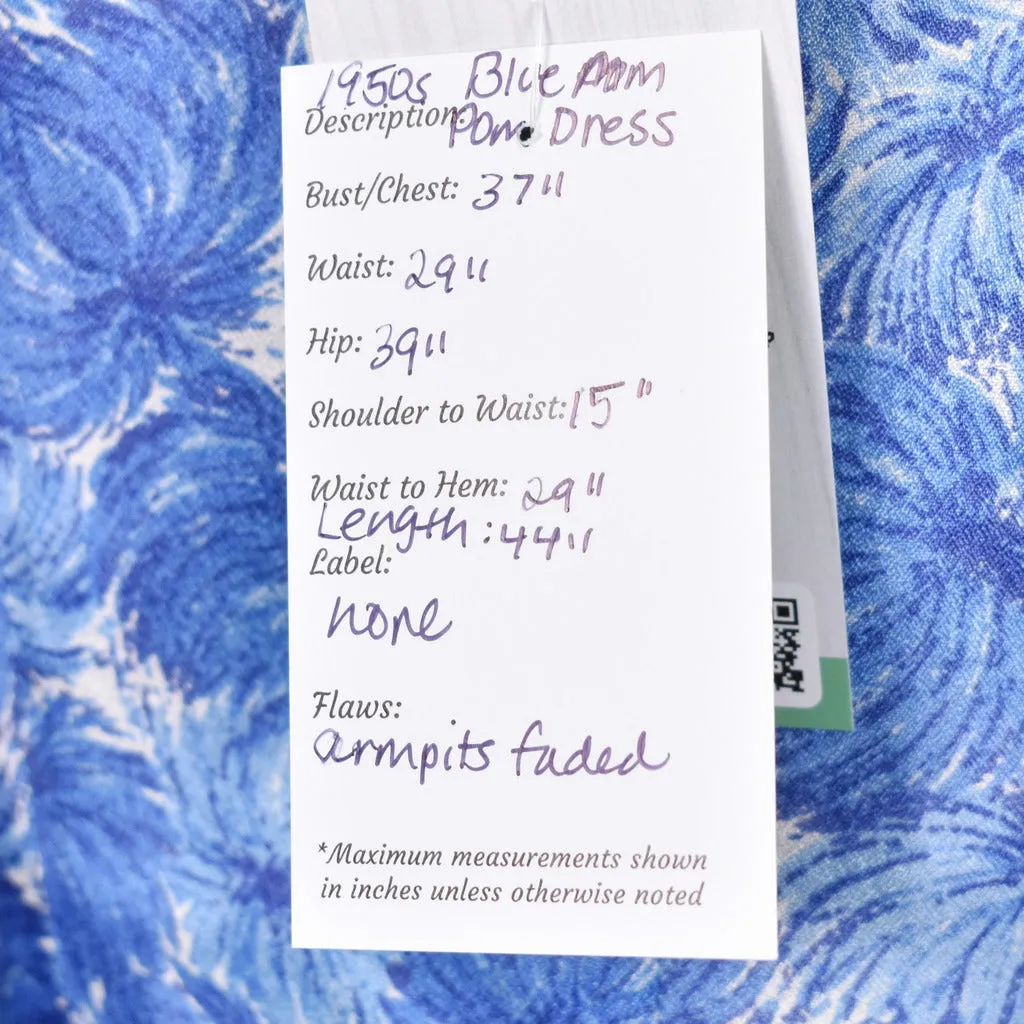 1950s Blue Pom
Description: Pom Dress
Bust/Chest: 37"
Waist: 29"
Hip: 39"
Shoulder to Waist: 15"
Waist to Hem: 29"
Length: 44"
Label:
none
Flaws:
armpits faded
*Maximum measurements shown
in inches unless otherwise noted